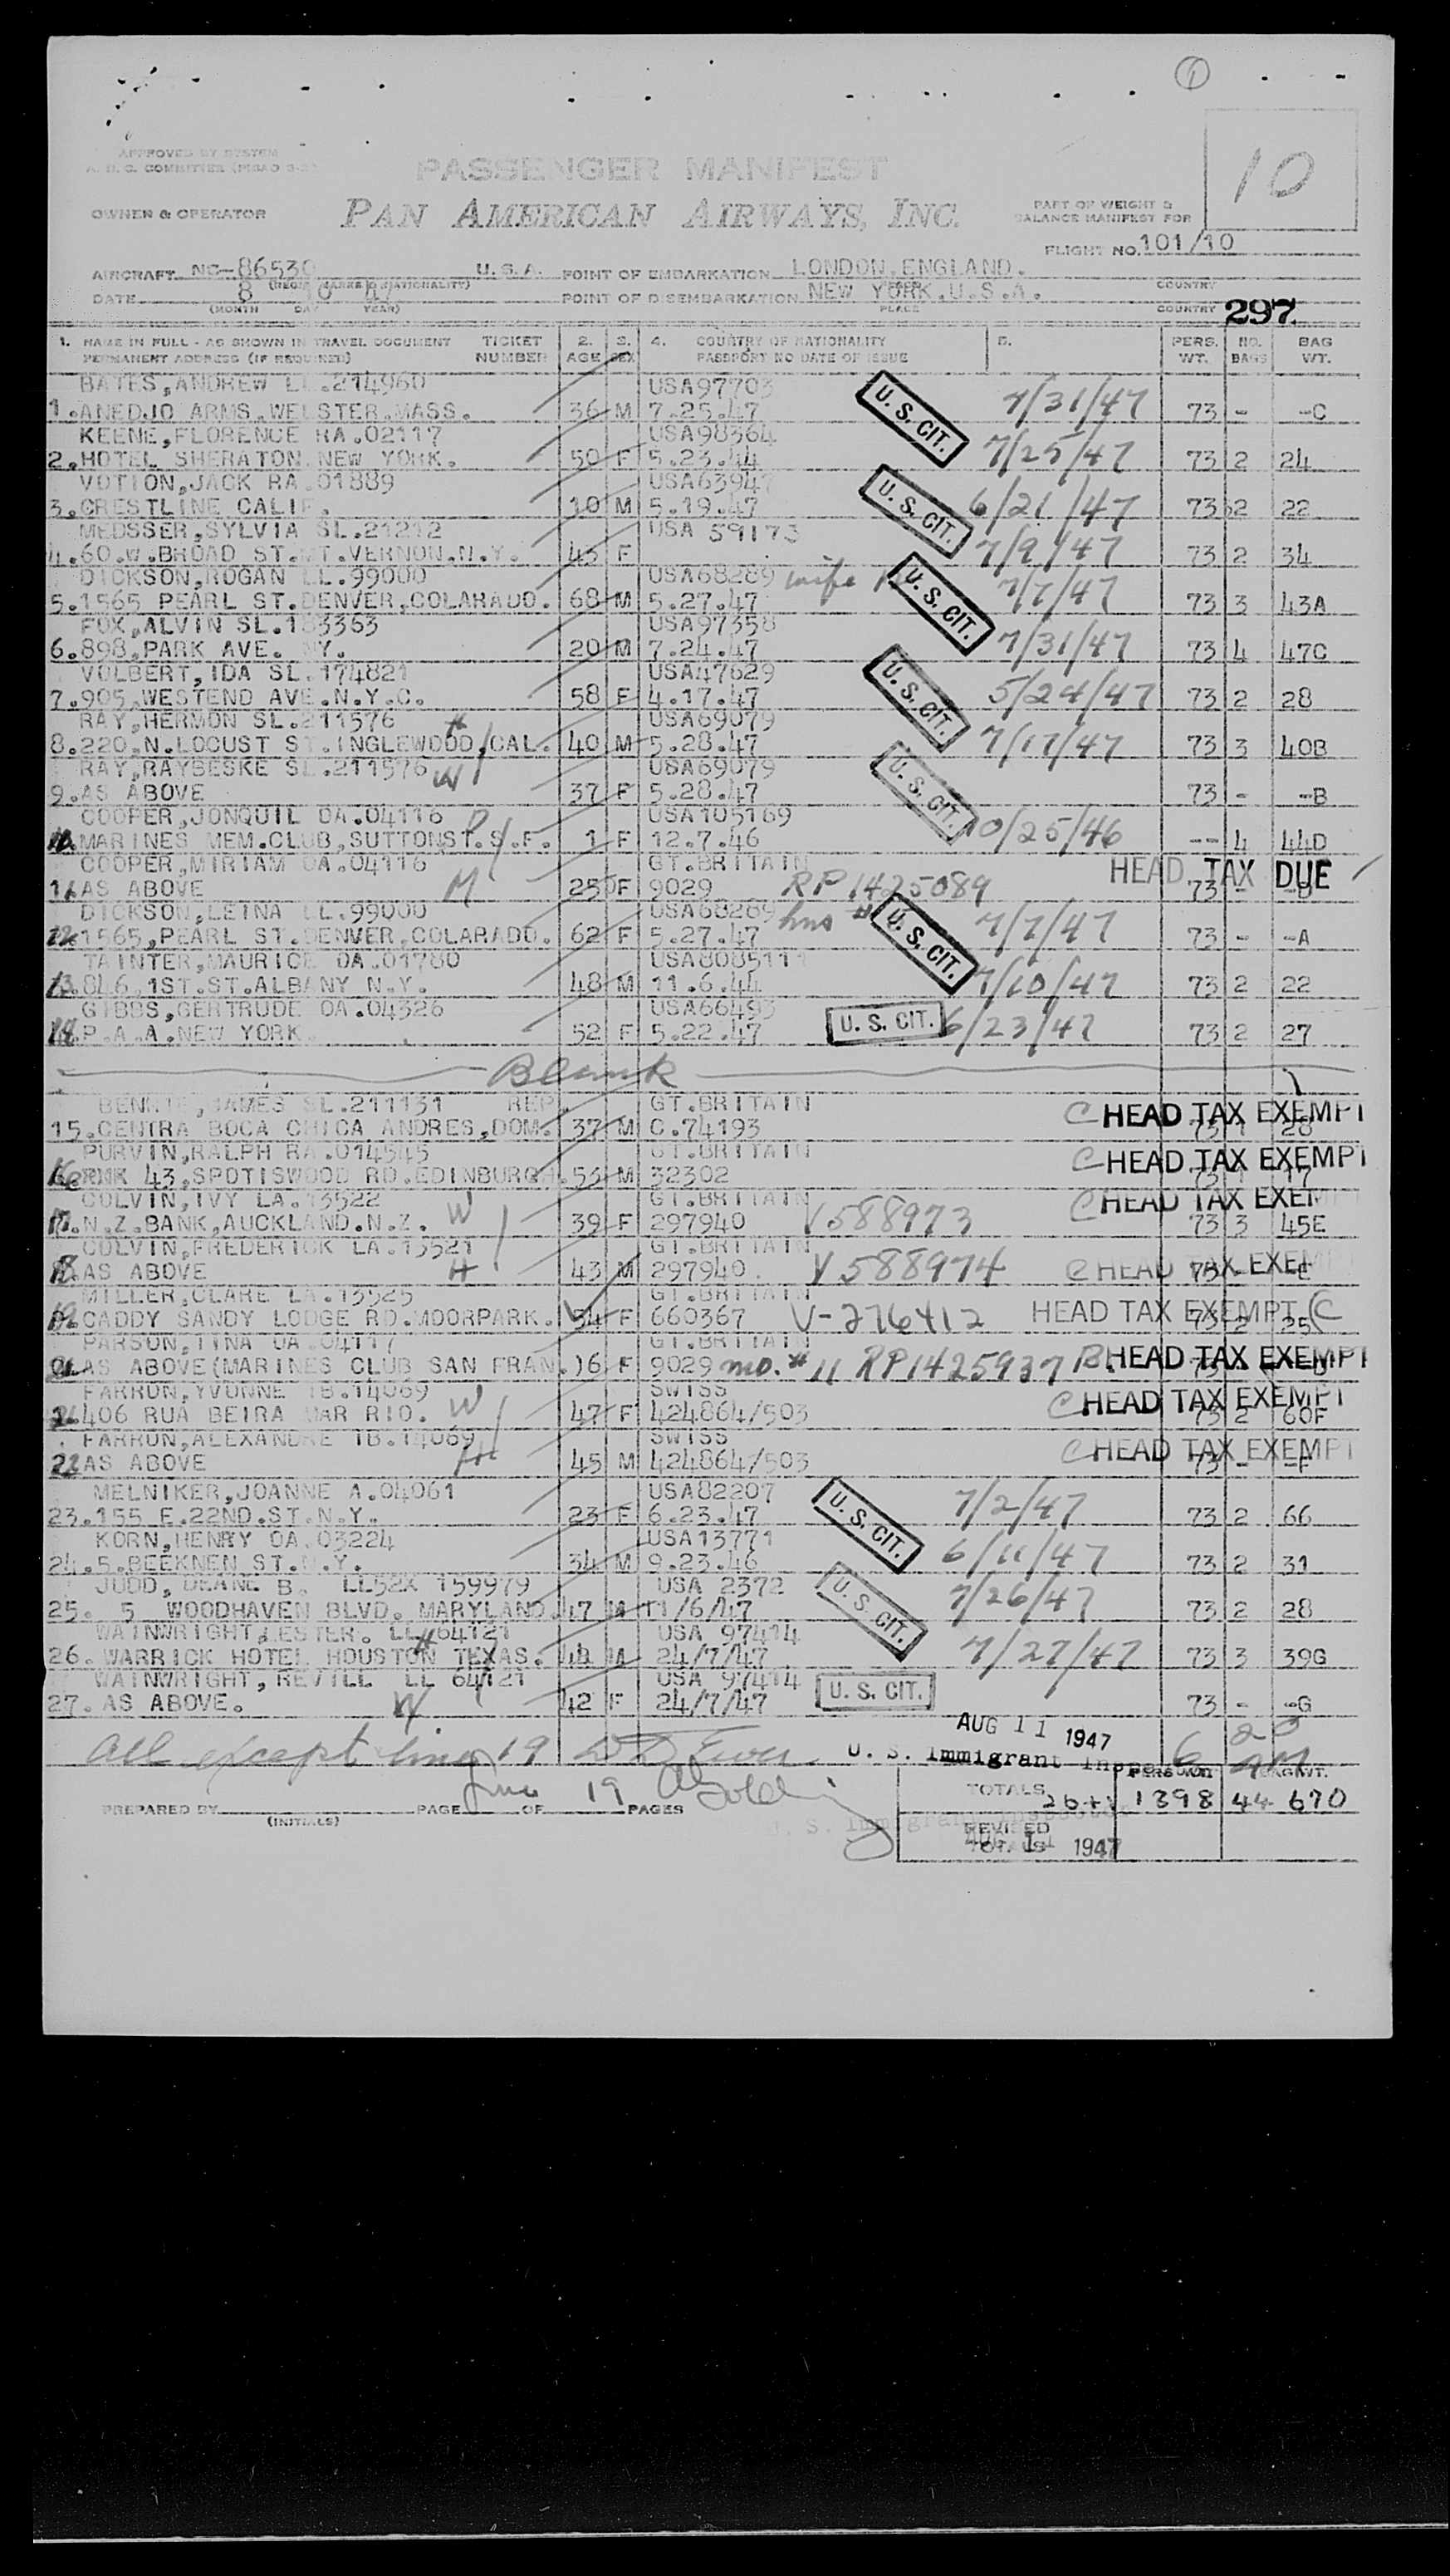 1
10
APPROVED BY SYSTEM
PASSENGER MANIFEST
OWNER & OPERATOR PAN AMERICAN AIRWAYS, INC.
PART OF WEIGHT &
BALANCE MANIFEST FOR
FLIGHT NO. 101/10
AIRCRAFT NC-86530 U. S. A. POINT OF EMBARKATION LONDON, ENGLAND.
COUNTRY
DATE 8 10 47 POINT OF DISEMBARKATION NEW YORK.U.S.A.
(MONTH DAY YEAR) PLACE COUNTRY 297
1. NAME IN FULL - AS SHOWN IN TRAVEL DOCUMENT TICKET 2. 3. 4. COUNTRY OF NATIONALITY 5. PERS. NO. BAG
PERMANENT ADDRESS (IF REQUIRED) NUMBER AGE SEX PASSPORT NO DATE OF ISSUE WT. BAGS WT.
BATES,ANDREW LL.214960 USA97703
1.ANEDJO ARMS.WEBSTER.MASS. 36 M 7.25.47 U. S. CIT. 7/31/47 73 - -C
KEENE,FLORENCE RA.02117 USA98364
2.HOTEL SHERATON NEW YORK. 50 F 5.23.44 7/25/47 73 2 24
VOTION,JACK RA.01889 USA63947
3.CRESTLINE CALIF. 10 M 5.19.47 U. S. CIT. 6/21/47 73 2 22
MEDSSER,SYLVIA SL.21212 USA 59173
4.60.W.BROAD ST.MT.VERNON.N.Y. 43 F 7/9/47 73 2 34
DICKSON,ROGAN LL.99000 USA68289 wife
5.1565 PEARL ST.DENVER,COLARADO. 68 M 5.27.47 U. S. CIT. 7/7/47 73 3 43A
FOX,ALVIN SL.183363 USA97358
6.898,PARK AVE. NY. 20 M 7.24.47 7/31/47 73 4 47C
VOLBERT,IDA SL.174821 USA47629
7.905,WESTEND AVE.N.Y.C. 58 F 4.17.47 U. S. CIT. 5/24/47 73 2 28
RAY,HERMON SL.211576 H USA69079
8.220.N.LOCUST ST.INGLEWOOD,CAL. 40 M 5.28.47 7/17/47 73 3 40B
RAY,RAYBESKE SL.211576 W USA69079
9.AS ABOVE 37 F 5.28.47 U. S. CIT. 73 - -B
COOPER,JONQUIL OA.04116 D USA105169
10.MARINES MEM.CLUB,SUTTONST.S.F. 1 F 12.7.46 10/25/46 -- 4 44D
COOPER,MIRIAM OA.04116 GT.BRITAIN HEAD TAX DUE
11.AS ABOVE M 25 F 9029 RP 1425089 73 - -D
DICKSON,LEINA LL.99000 USA68289 hus #
12.1565,PEARL ST.DENVER,COLARADO. 62 F 5.27.47 U. S. CIT. 7/7/47 73 - -A
TAINTER,MAURICE OA.01780 USA8085111
13.846.1ST.ST.ALBANY N.Y. 48 M 11.6.44 7/10/47 73 2 22
GIBBS,GERTRUDE OA.04326 USA66493
14.P.A.A.NEW YORK. 52 F 5.22.47 U. S. CIT. 6/23/47 73 2 27
Blank
BENNIE,JAMES SL.211131 REP. GT.BRITAIN
15.CENTRA BOCA CHICA ANDRES,DOM. 37 M C.74193 C HEAD TAX EXEMPT
PURVIN,RALPH RA.014545 GT.BRITAIN
43,SPOTISWOOD RD.EDINBURGH. 53 M 32302 C HEAD TAX EXEMPT 17
COLVIN,IVY LA.13522 W GT.BRITAIN C HEAD TAX EXEM
17.N.Z.BANK,AUCKLAND.N.Z. 39 F 297940 V588973 73 3 45E
COLVIN,FREDERICK LA.13521 GT.BRITAIN
18.AS ABOVE H 43 M 297940 V588974 C HEAD TAX EXEM 73 - -E
MILLER,CLARE LA.13525 GT.BRITAIN
19.CADDY SANDY LODGE RD.MOORPARK. 54 F 660367 V-276412 HEAD TAX EXEMPT C 73 2 25
PARSON,TINA OA.04117 GT.BRITAIN
AS ABOVE(MARINES CLUB SAN FRAN.) 6 F 9029 mo. # 11 RP1425937 B. HEAD TAX EXEMPT
FARRON,YVONNE TB.14069 W SWISS
406 RUA BEIRA MAR RIO. 47 F 424864/503 C HEAD TAX EXEMPT 73 2 60F
FARRON,ALEXANDRE TB.14069 SWISS
22.AS ABOVE H 45 M 424864/503 C HEAD TAX EXEMPT 73 - -F
MELNIKER,JOANNE A.04061 USA82207
23.155 E.22ND.ST.N.Y. 23 F 6.23.47 U. S. CIT. 7/2/47 73 2 66
KORN,HENRY OA.03224 USA13771
24.5.BEEKNEN ST.N.Y. 34 M 9.23.46 6/11/47 73 2 31
JUDD, DEANE B. LL52X 159979 USA 2372
25. 5 WOODHAVEN BLVD. MARYLAND. 47 M 11/6/47 U. S. CIT. 7/26/47 73 2 28
WAINWRIGHT,LESTER. LL 64121 H USA 97414
26. WARRICK HOTEL HOUSTON TEXAS. 48 M 24/7/47 7/27/47 73 3 39G
WAINWRIGHT, REVILL LL 64121 USA 97414
27. AS ABOVE. W 42 F 24/7/47 U. S. CIT. 73 - -G
AUG 11 1947
All except line 19
U. S. Immigrant Inspector
PREPARED BY (INITIALS) PAGE OF PAGES
Line 19
TOTALS 26+1 1398 44 670
REVISED
TOTALS 1947